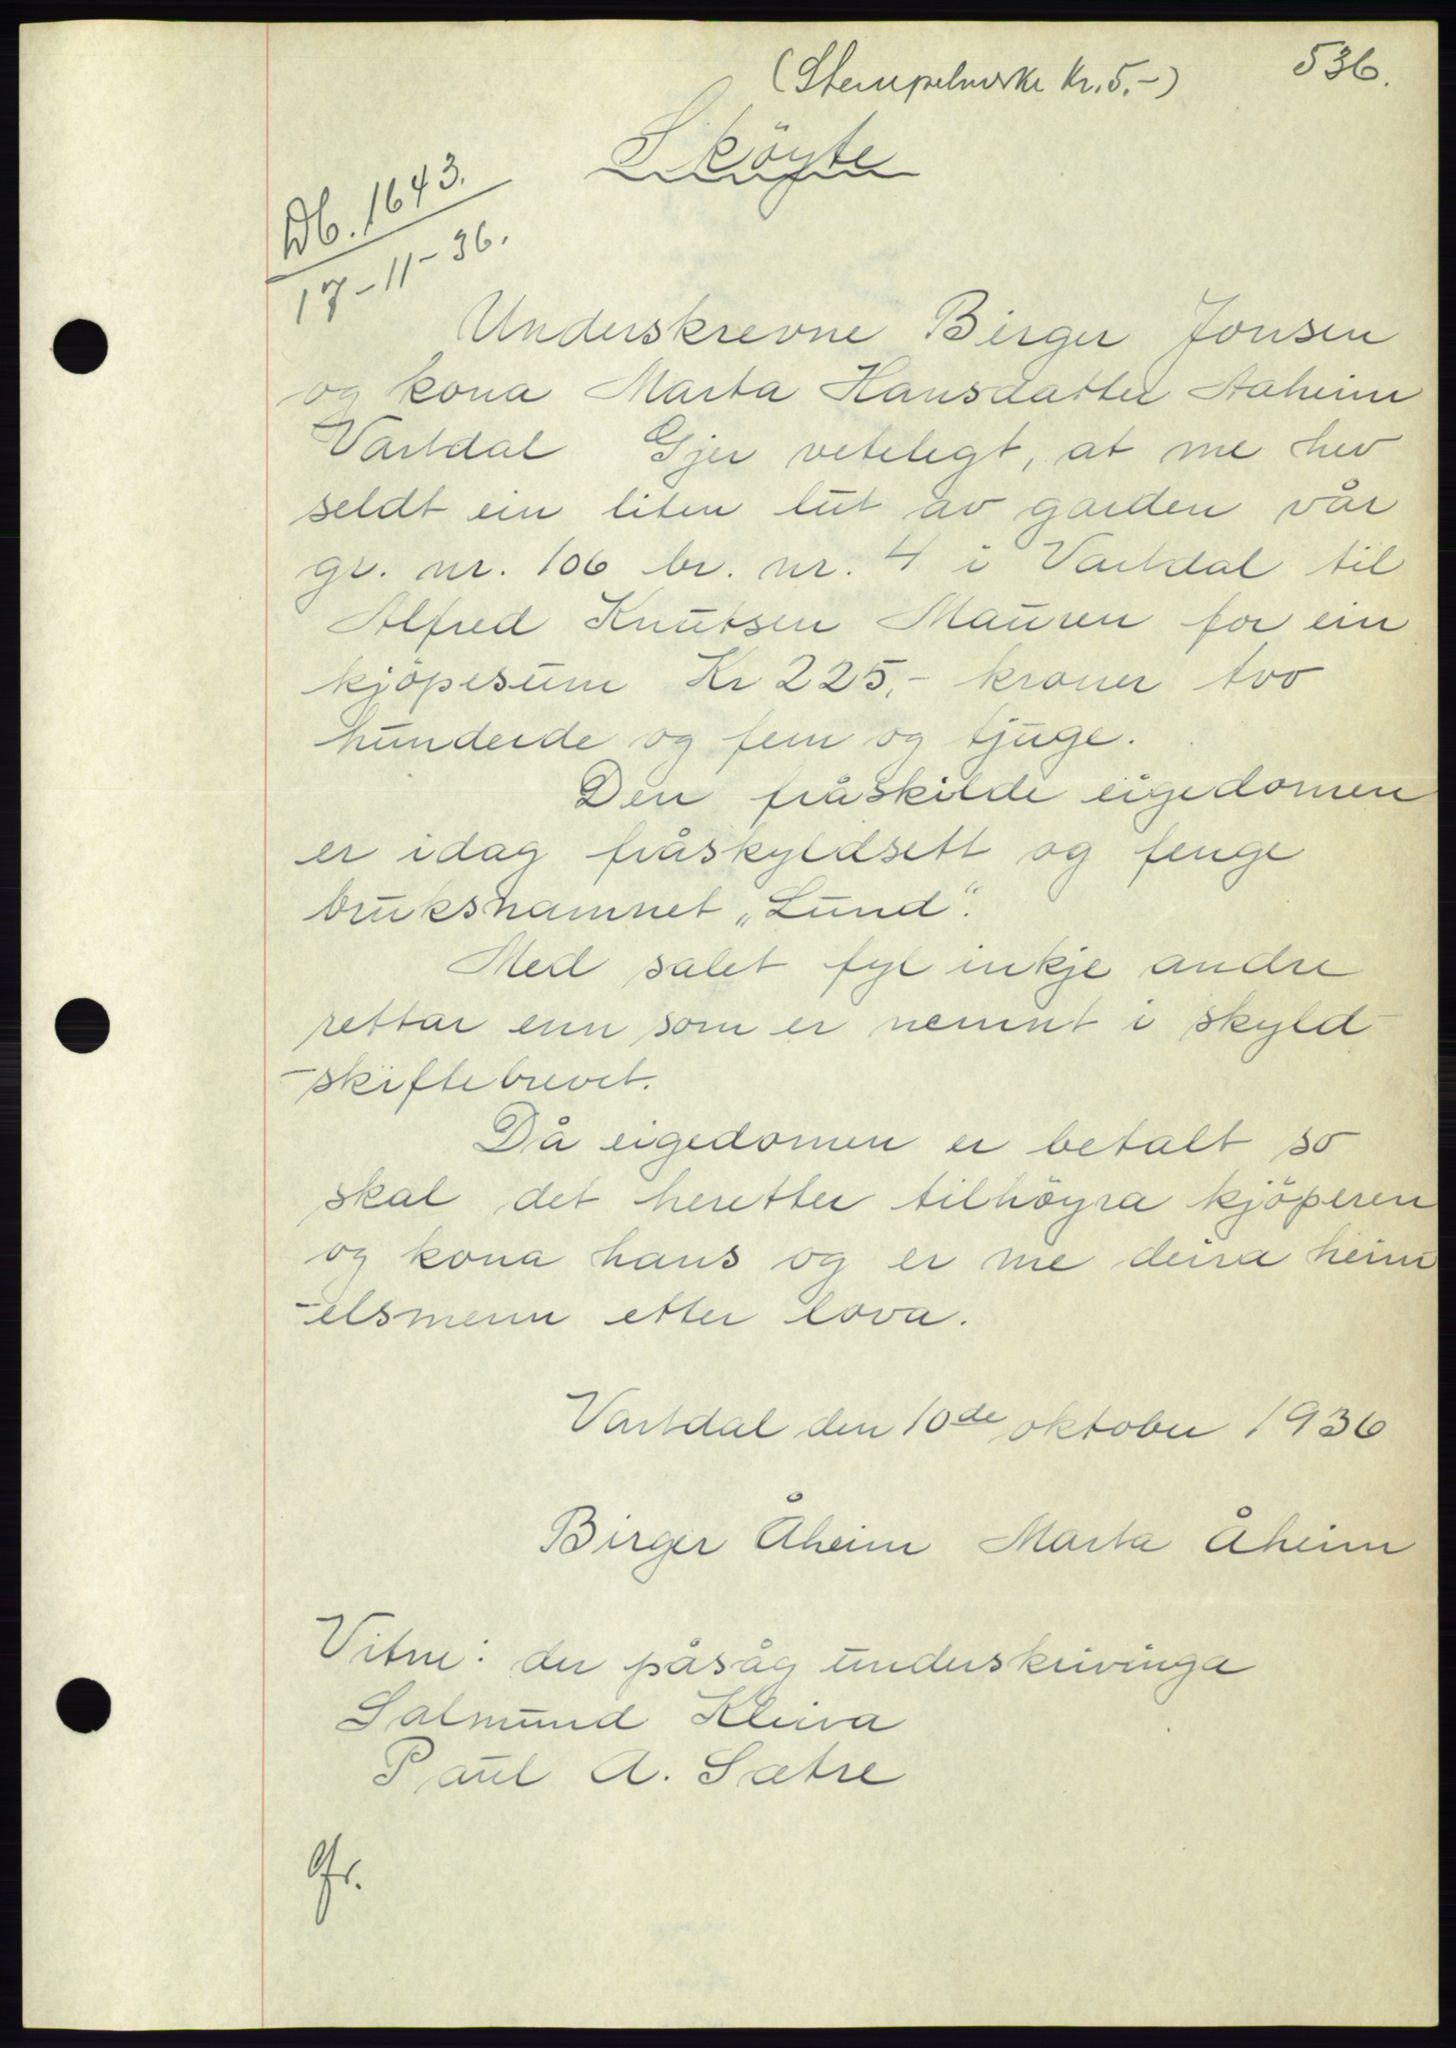 (Stempelmerke kr. 5.-)
536.
Sköyte
Db. 1643.
17-11-36.
Underskrevne Birger Jonsen
og kona Marta Hansdatter Aaheim
Vartdal Gjer vitelegt, at me hev
seldt ein liten lut av garden vår
gr. nr. 106 br. nr. 4 i Vartdal til
Alfred Knutsen Mauren for ein
kjöpesum Kr 225,- kroner tvo
hunderde og fem og tjuge.
Den fråskilde eigedomen
er idag fråskyldsett og fenge
bruksnamnet „Lund".
Med salet fyl inkje andre
rettar enn som er nemnt i skyld-
-skiftebrevet.
Då eigedomen er betalt so
skal det heretter tilhöyra kjöperen
og kona hans og er me deira heim
-elsmenn etter lova.
Vartdal den 10de oktober 1936
Birger Åheim Marta Åheim
Vitne: der påsåg underskrivinga
Salmund Kleiva
Paul A. Sætre
Gr.